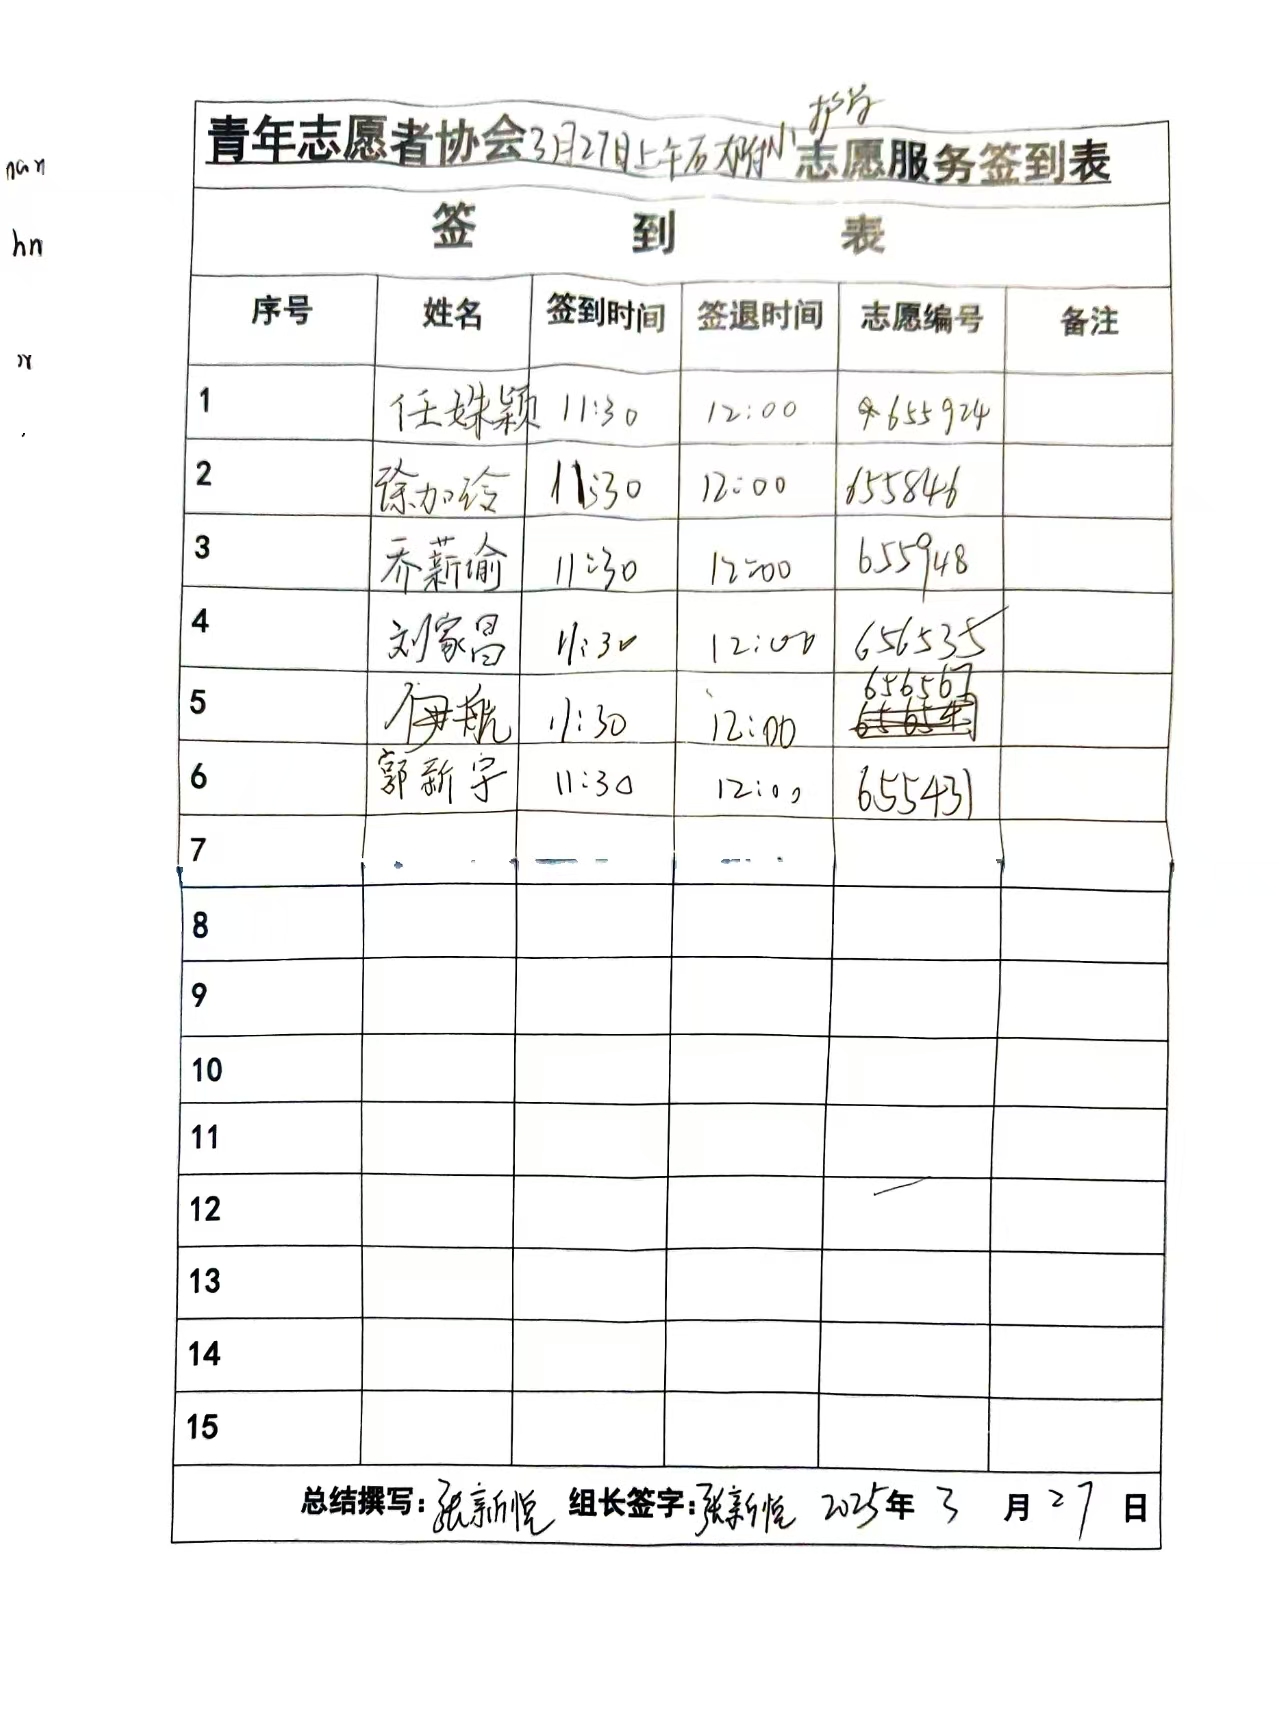 护学
青年志愿者协会3月27日上午石大附小志愿服务签到表
签 到 表
序号 姓名 签到时间 签退时间 志愿编号 备注
1 任姝颖 11:30 12:00 655924
2 徐加玲 11:30 12:00 655846
3 乔薪愉 11:30 12:00 655948
4 刘家昌 11:30 12:00 656535
5 伊航 11:30 12:00 656567
6 郭新宇 11:30 12:00 655431
7
8
9
10
11
12
13
14
15
总结撰写:张新悦 组长签字:张新悦 2025年 3 月 27 日